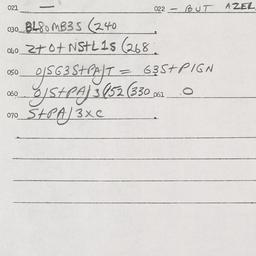 021 — 022 — BUT AZEL
030 BL80MB3S (240
040 Z+O+NS+L1S (268.
050 O/SG3S+PA/T = G3S+PIGN
060 O/S+PA/3(152(330 061 O
070 S+PA/3XC